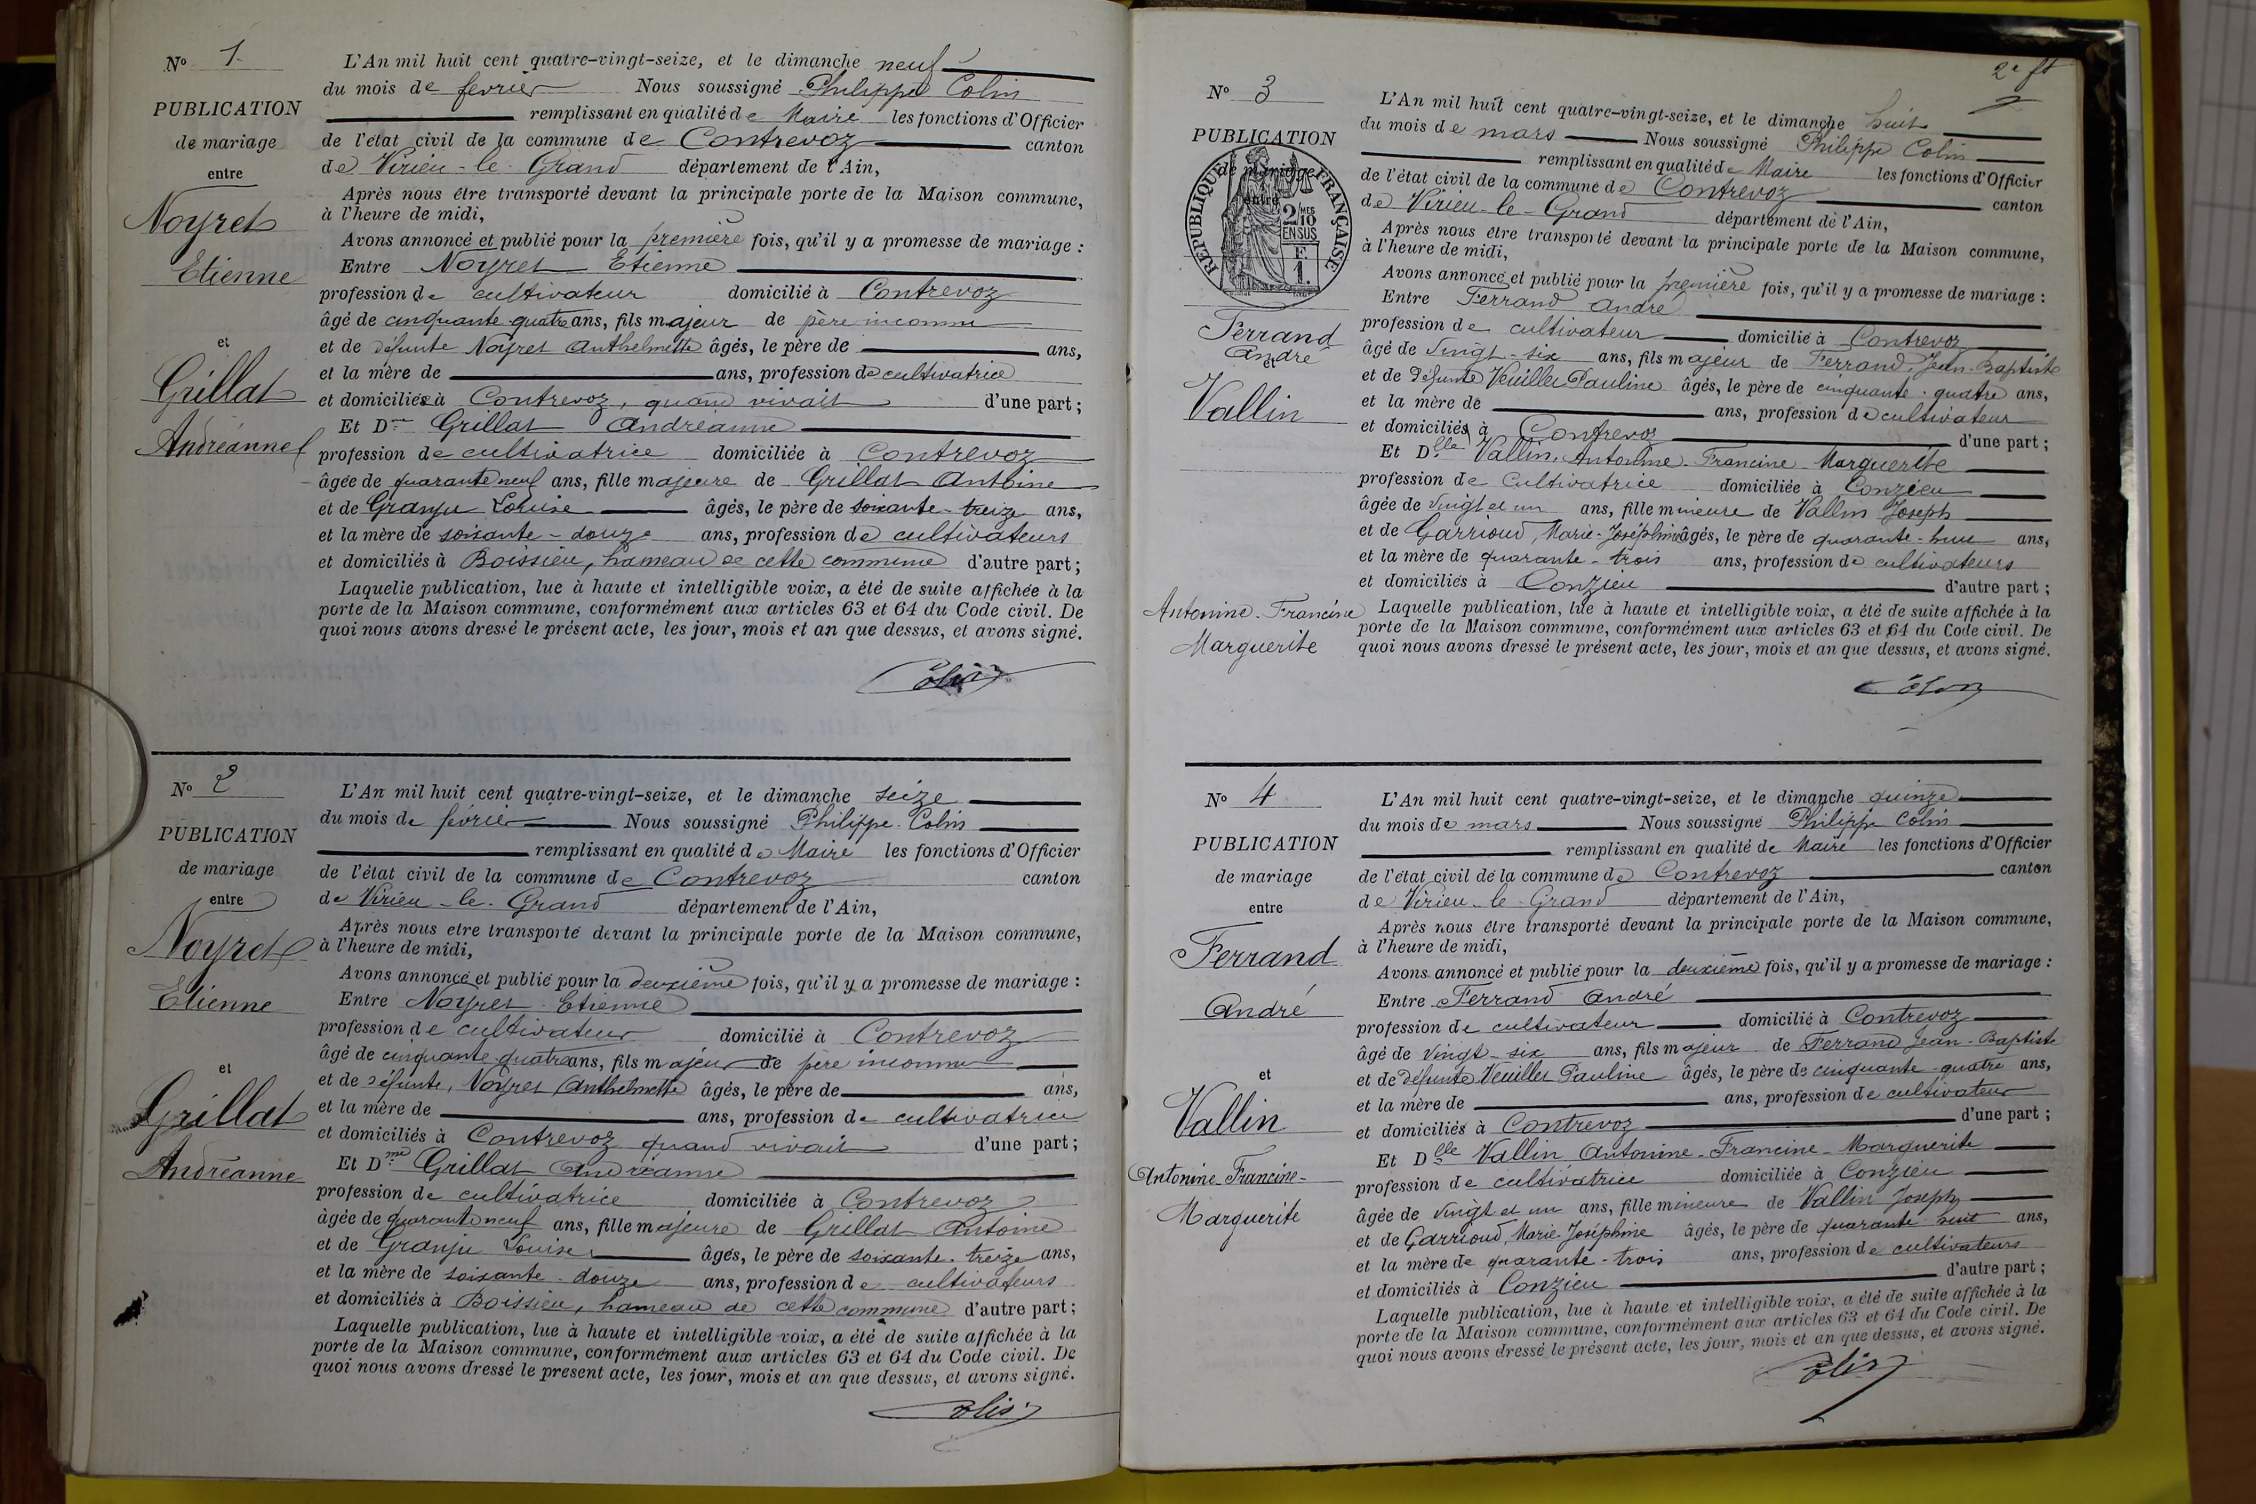 N° 1
PUBLICATION
de mariage
entre
Noyret
Etienne
et
Grillat
Andréanne
L'An mil huit cent quatre-vingt-seize, et le dimanche neuf
du mois de février Nous soussigné Philippe Colin
remplissant en qualité de Maire les fonctions d'Officier
de l'état civil de la commune de Contrevoz canton
de Virieu-le-Grand département de l'Ain,
Après nous être transporté devant la principale porte de la Maison commune,
à l'heure de midi,
Avons annoncé et publié pour la première fois, qu'il y a promesse de mariage :
Entre Noyret Etienne
profession de cultivateur domicilié à Contrevoz
âgé de cinquante-quatre ans, fils majeur de père inconnu
et de défunte Noyret Anthelmette âgés, le père de ans,
et la mère de ans, profession de cultivatrice
et domiciliés à Contrevoz, quand vivait d'une part ;
Et Dme Grillat Andréanne
profession de cultivatrice domiciliée à Contrevoz
âgée de quarante neuf ans, fille majeure de Grillat Antoine
et de Granju Louise âgés, le père de soixante-treize ans,
et la mère de soixante-douze ans, profession de cultivateurs
et domiciliés à Boissieu, hameau de cette commune d'autre part ;
Laquelle publication, lue à haute et intelligible voix, a été de suite affichée à la
porte de la Maison commune, conformément aux articles 63 et 64 du Code civil. De
quoi nous avons dressé le présent acte, les jour, mois et an que dessus, et avons signé.
Colin
N° 2
PUBLICATION
de mariage
entre
Noyret
Etienne
et
Grillat
Andréanne
L'An mil huit cent quatre-vingt-seize, et le dimanche seize
du mois de février Nous soussigné Philippe Colin
remplissant en qualité de Maire les fonctions d'Officier
de l'état civil de la commune de Contrevoz canton
de Virieu-le-Grand département de l'Ain,
Après nous être transporté devant la principale porte de la Maison commune,
à l'heure de midi,
Avons annoncé et publié pour la deuxième fois, qu'il y a promesse de mariage :
Entre Noyret Etienne
profession de cultivateur domicilié à Contrevoz
âgé de cinquante-quatre ans, fils majeur de père inconnu
et de défunte, Noyret Anthelmette âgés, le père de ans,
et la mère de ans, profession de cultivatrice
et domiciliés à Contrevoz quand vivait d'une part ;
Et Dme Grillat Andréanne
profession de cultivatrice domiciliée à Contrevoz
âgée de quarante neuf ans, fille majeure de Grillat Antoine
et de Granju Louise âgés, le père de soixante-treize ans,
et la mère de soixante-douze ans, profession de cultivateurs
et domiciliés à Boissieu, hameau de cette commune d'autre part ;
Laquelle publication, lue à haute et intelligible voix, a été de suite affichée à la
porte de la Maison commune, conformément aux articles 63 et 64 du Code civil. De
quoi nous avons dressé le présent acte, les jour, mois et an que dessus, et avons signé.
Colin
2e ft
N° 3
PUBLICATION
de mariage
entre
RÉPUBLIQUE FRANÇAISE
2/10MES
EN SUS
F.
1.
Ferrand
André
et
Vallin
Antonine-Francine
Marguerite
L'An mil huit cent quatre-vingt-seize, et le dimanche huit
du mois de mars Nous soussigné Philippe Colin
remplissant en qualité de Maire les fonctions d'Officier
de l'état civil de la commune de Contrevoz canton
de Virieu-le-Grand département de l'Ain,
Après nous être transporté devant la principale porte de la Maison commune,
à l'heure de midi,
Avons annoncé et publié pour la première fois, qu'il y a promesse de mariage :
Entre Ferrand André
profession de cultivateur domicilié à Contrevoz
âgé de vingt-six ans, fils majeur de Ferrand, Jean-Baptiste
et de défunte Veuillet Pauline âgés, le père de cinquante-quatre ans,
et la mère de ans, profession de cultivateur
et domiciliés à Contrevoz d'une part ;
Et Dlle Vallin, Antonine-Francine-Marguerite
profession de cultivatrice domiciliée à Conzieu
âgée de vingt et un ans, fille mineure de Vallin Joseph
et de Garrioud, Marie-Joséphine âgés, le père de quarante-huit ans,
et la mère de quarante-trois ans, profession de cultivateurs
et domiciliés à Conzieu d'autre part ;
Laquelle publication, lue à haute et intelligible voix, a été de suite affichée à la
porte de la Maison commune, conformément aux articles 63 et 64 du Code civil. De
quoi nous avons dressé le présent acte, les jour, mois et an que dessus, et avons signé.
Colin
N° 4
PUBLICATION
de mariage
entre
Ferrand
André
et
Vallin
Antonine-Francine-
Marguerite
L'An mil huit cent quatre-vingt-seize, et le dimanche quinze
du mois de mars Nous soussigné Philippe Colin
remplissant en qualité de Maire les fonctions d'Officier
de l'état civil de la commune de Contrevoz canton
de Virieu-le-Grand département de l'Ain,
Après nous être transporté devant la principale porte de la Maison commune,
à l'heure de midi,
Avons annoncé et publié pour la deuxième fois, qu'il y a promesse de mariage :
Entre Ferrand André
profession de cultivateur domicilié à Contrevoz
âgé de vingt-six ans, fils majeur de Ferrand Jean-Baptiste
et de défunte Veuillet Pauline âgés, le père de cinquante-quatre ans,
et la mère de ans, profession de cultivateur
et domiciliés à Contrevoz d'une part ;
Et Dlle Vallin Antonine-Francine-Marguerite
profession de cultivatrice domiciliée à Conzieu
âgée de vingt et un ans, fille mineure de Vallin Joseph
et de Garrioud, Marie-Joséphine âgés, le père de quarante-huit ans,
et la mère de quarante-trois ans, profession de cultivateurs
et domiciliés à Conzieu d'autre part ;
Laquelle publication, lue à haute et intelligible voix, a été de suite affichée à la
porte de la Maison commune, conformément aux articles 63 et 64 du Code civil. De
quoi nous avons dressé le présent acte, les jour, mois et an que dessus, et avons signé.
Colin